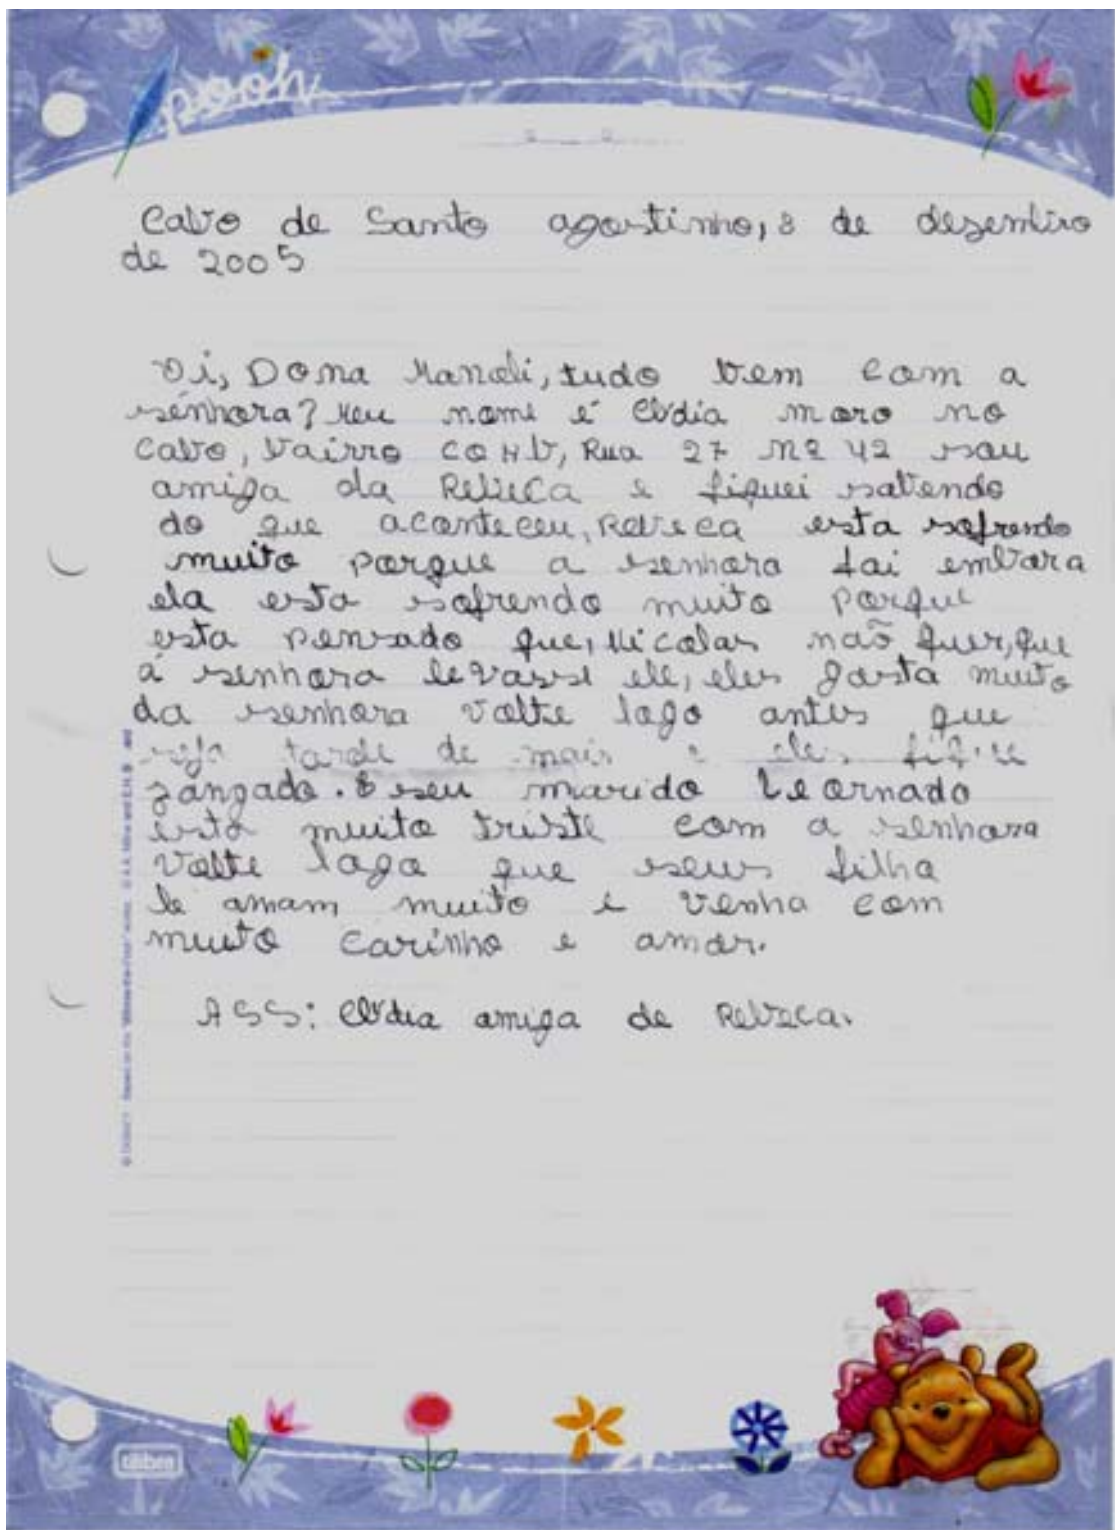 pooh
Cabo de Santo agostinho, 8 de desembro
de 2005
Oi, Dona Manoeli, tudo bem com a
senhora? Meu nome é Cládia moro no
Cabo, bairro COHB, Rua 27 nº 42 sou
amiga da Rebeca e fiquei sabendo
do que aconteceu, Rebeca esta sofrendo
muito porque a senhora foi embora
ela esta sofrendo muito porque
esta pensado que, Nicolas não quer, que
á senhora levasse ele, eles gosta muito
da senhora volte logo antes que
seja tarde de mais e eles fique
zangado. E seu marido Leornado
está muito triste com a senhora
Volte logo que seus filho
le amam muito e venha com
muito carinho e amor.
ASS: Cládia amiga de Rebeca.
tilibra